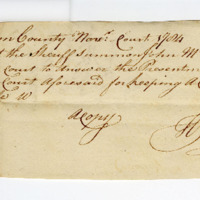 on County Novr. Court 1704
t the Sheriff Summon John M
Court to Answer the Presentm
Court aforesaid for keeping a
a Copy